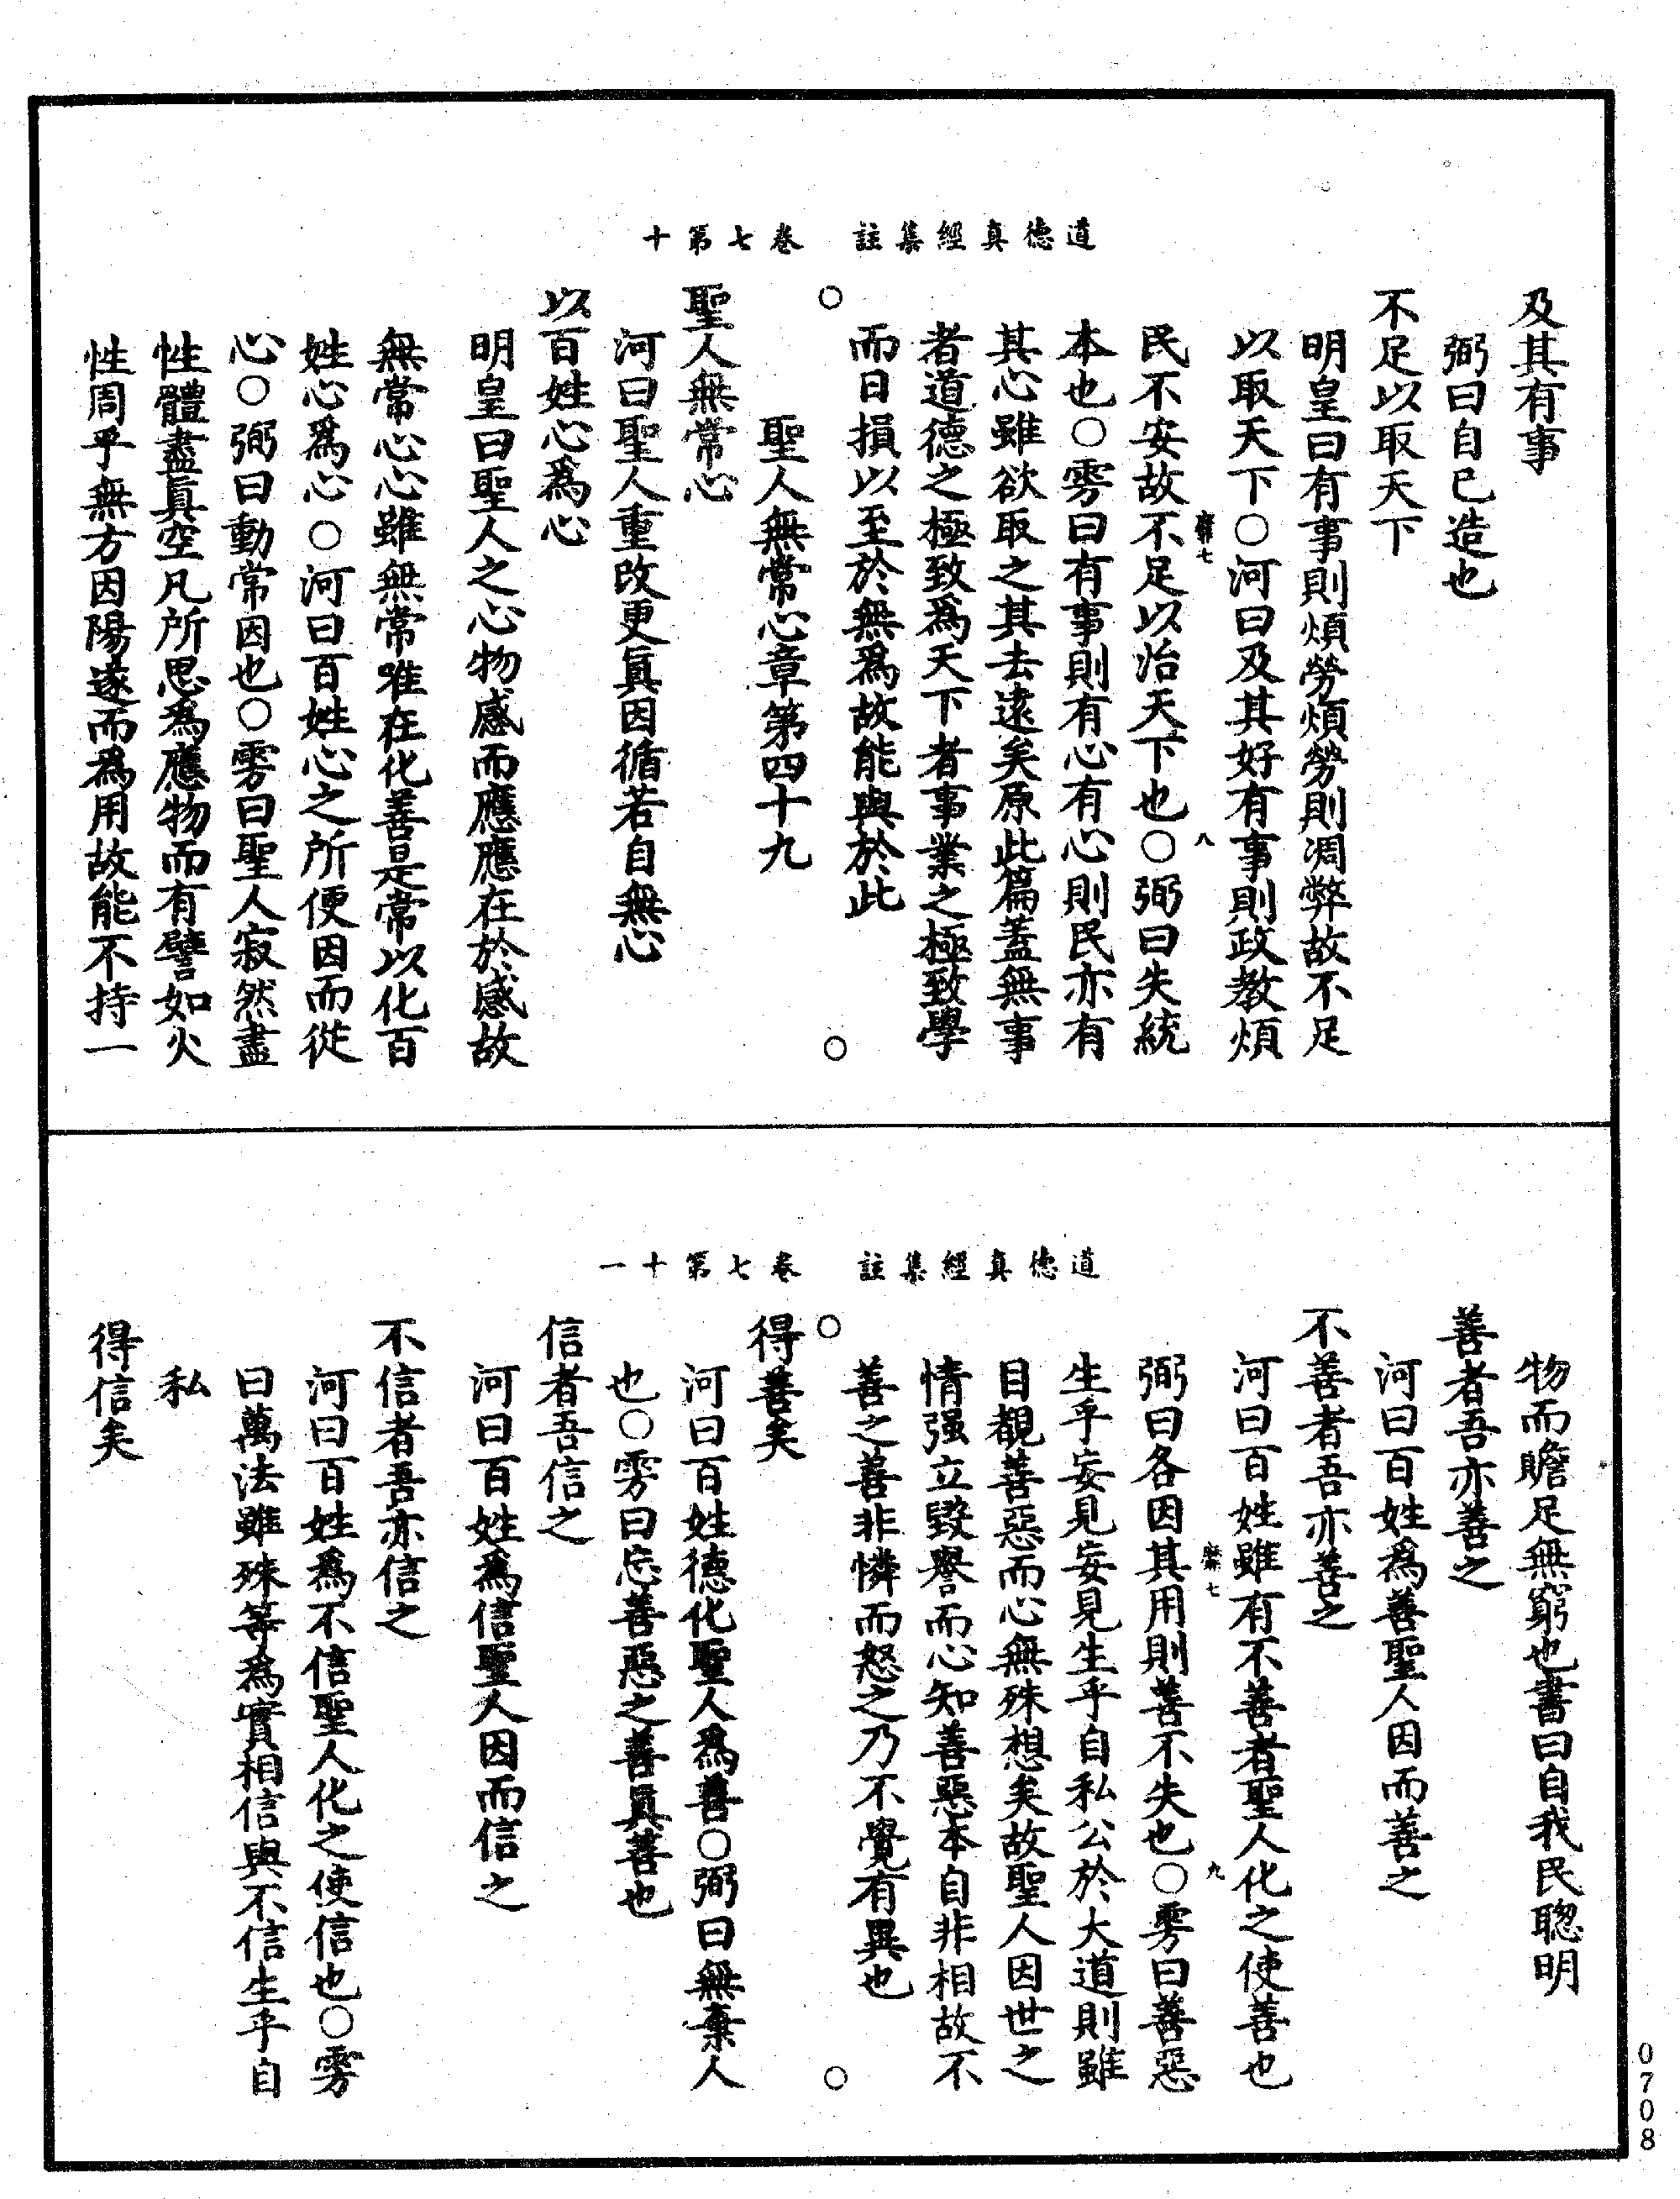 道德真經集註　卷七第十
及其有事
弼曰自已造也
不足以取天下
明皇曰有事則煩勞煩勞則凋弊故不足
以取天下〇河曰及其好有事則政教煩
民不安故不足以治天下也〇弼曰失統
本也〇雱曰有事則有心有心則民亦有
其心雖欲取之其去遠矣原此篇蓋無事
者道德之極致爲天下者事業之極致學
而日損以至於無爲故能與於此
聖人無常心章第四十九
聖人無常心
河曰聖人重改更貴因循若自無心
以百姓心爲心
明皇曰聖人之心物感而應應在於感故
無常心心雖無常唯在化善是常以化百
姓心爲心〇河曰百姓心之所便因而從
心〇弼曰動常因也〇雱曰聖人寂然盡
性體盡眞空凡所思爲應物而有譬如火
性周乎無方因陽遂而爲用故能不持一
道德真經集註　卷七第十一
物而贍足無窮也書曰自我民聰明
善者吾亦善之
河曰百姓爲善聖人因而善之
不善者吾亦善之
河曰百姓雖有不善者聖人化之使善也
弼曰各因其用則善不失也〇雱曰善惡
生乎妄見妄見生乎自私公於大道則雖
目覩善惡而心無殊想矣故聖人因世之
情强立毀譽而心知善惡本自非相故不
善之善非憐而恕之乃不覺有異也
得善矣
河曰百姓德化聖人爲善〇弼曰無棄人
也〇雱曰忘善惡之善眞善也
信者吾信之
河曰百姓爲信聖人因而信之
不信者吾亦信之
河曰百姓爲不信聖人化之使信也〇雱
曰萬法雖殊等爲實相信與不信生乎自
私
得信矣
0708